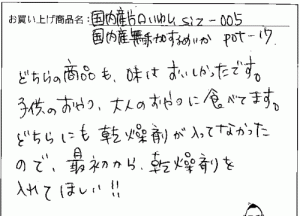 お買い上げ商品名：国内産片口いわし siz-005
国内産無添加するめいか pot-17
どちらの商品も、味はおいしかったです。
子供のおやつ、大人のおやつに食べてます。
どちらにも乾燥剤が入ってなかった
ので、最初から、乾燥剤を
入れてほしい!!